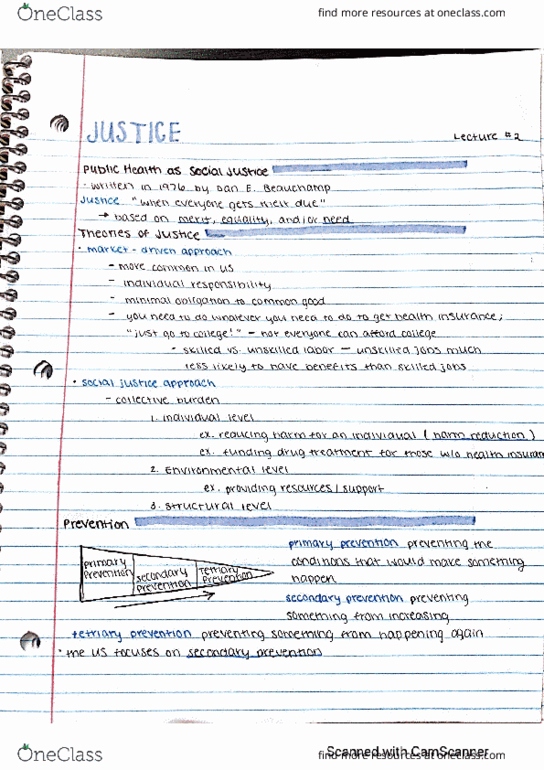 OneClass
find more resources at oneclass.com
JUSTICE
Lecture #2
Public Health as Social Justice
- written in 1976 by Dan E. Beauchamp
Justice "when everyone gets their due"
→ based on merit, equality, and/or need
Theories of Justice
• market-driven approach
- more common in US
- individual responsibility
- minimal obligation to common good
- you need to do whatever you need to do to get health insurance;
"just go to college!" - not everyone can afford college
- skilled vs. unskilled labor - unskilled jobs much
less likely to have benefits than skilled jobs
• social justice approach
- collective burden
1. individual level
ex. reducing harm for an individual (harm reduction)
ex. funding drug treatment for those w/o health insuran
2. Environmental level
ex. providing resources/support
3. structural level
Prevention
primary prevention
secondary prevention
tertiary prevention
primary prevention preventing the
conditions that would make something
happen
secondary prevention preventing
something from increasing
tertiary prevention preventing something from happening again
• the US focuses on secondary prevention
Scanned with CamScanner
OneClass
find more resources at oneclass.com